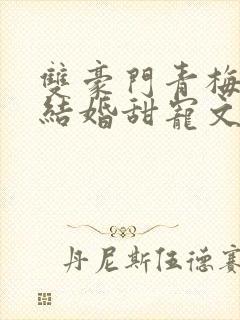 雙豪門青梅
結婚甜寵文
丹尼斯伍德賽